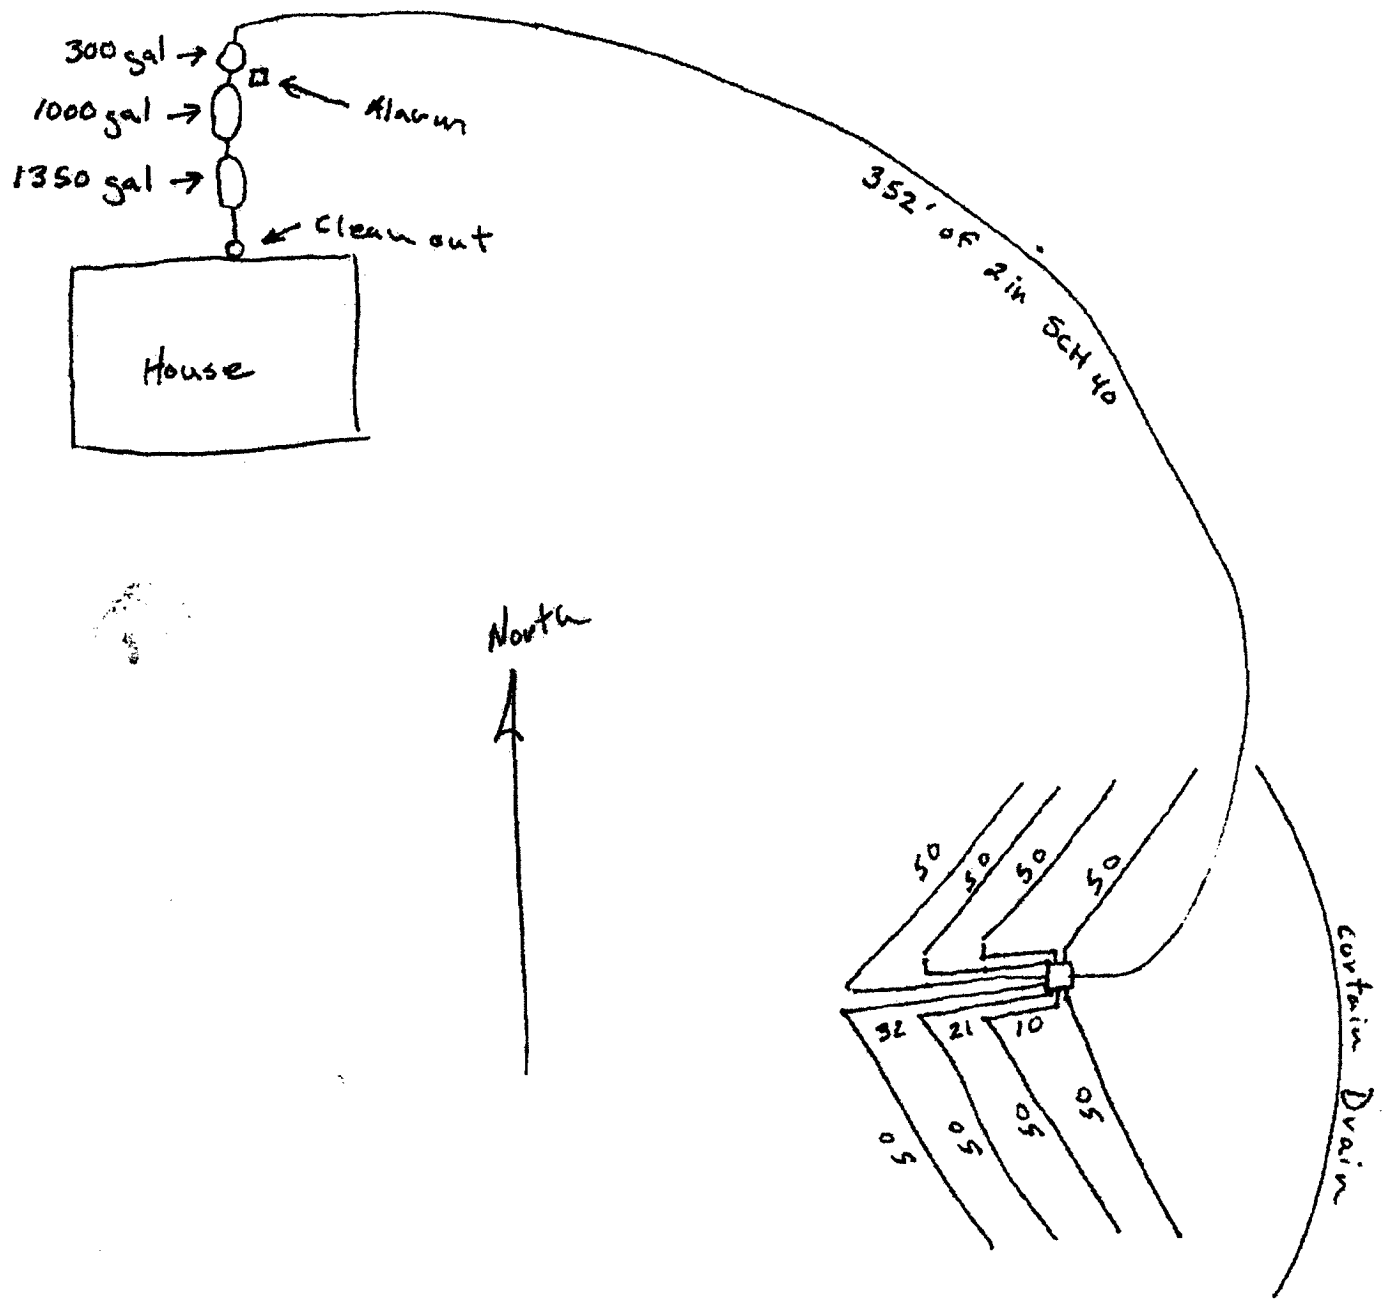 300 gal
1000 gal
Alarm
1350 gal
Clean out
House
352' of 2 in SCH 40
North
50
50
50
50
32
21
10
50
50
50
50
Curtain Drain